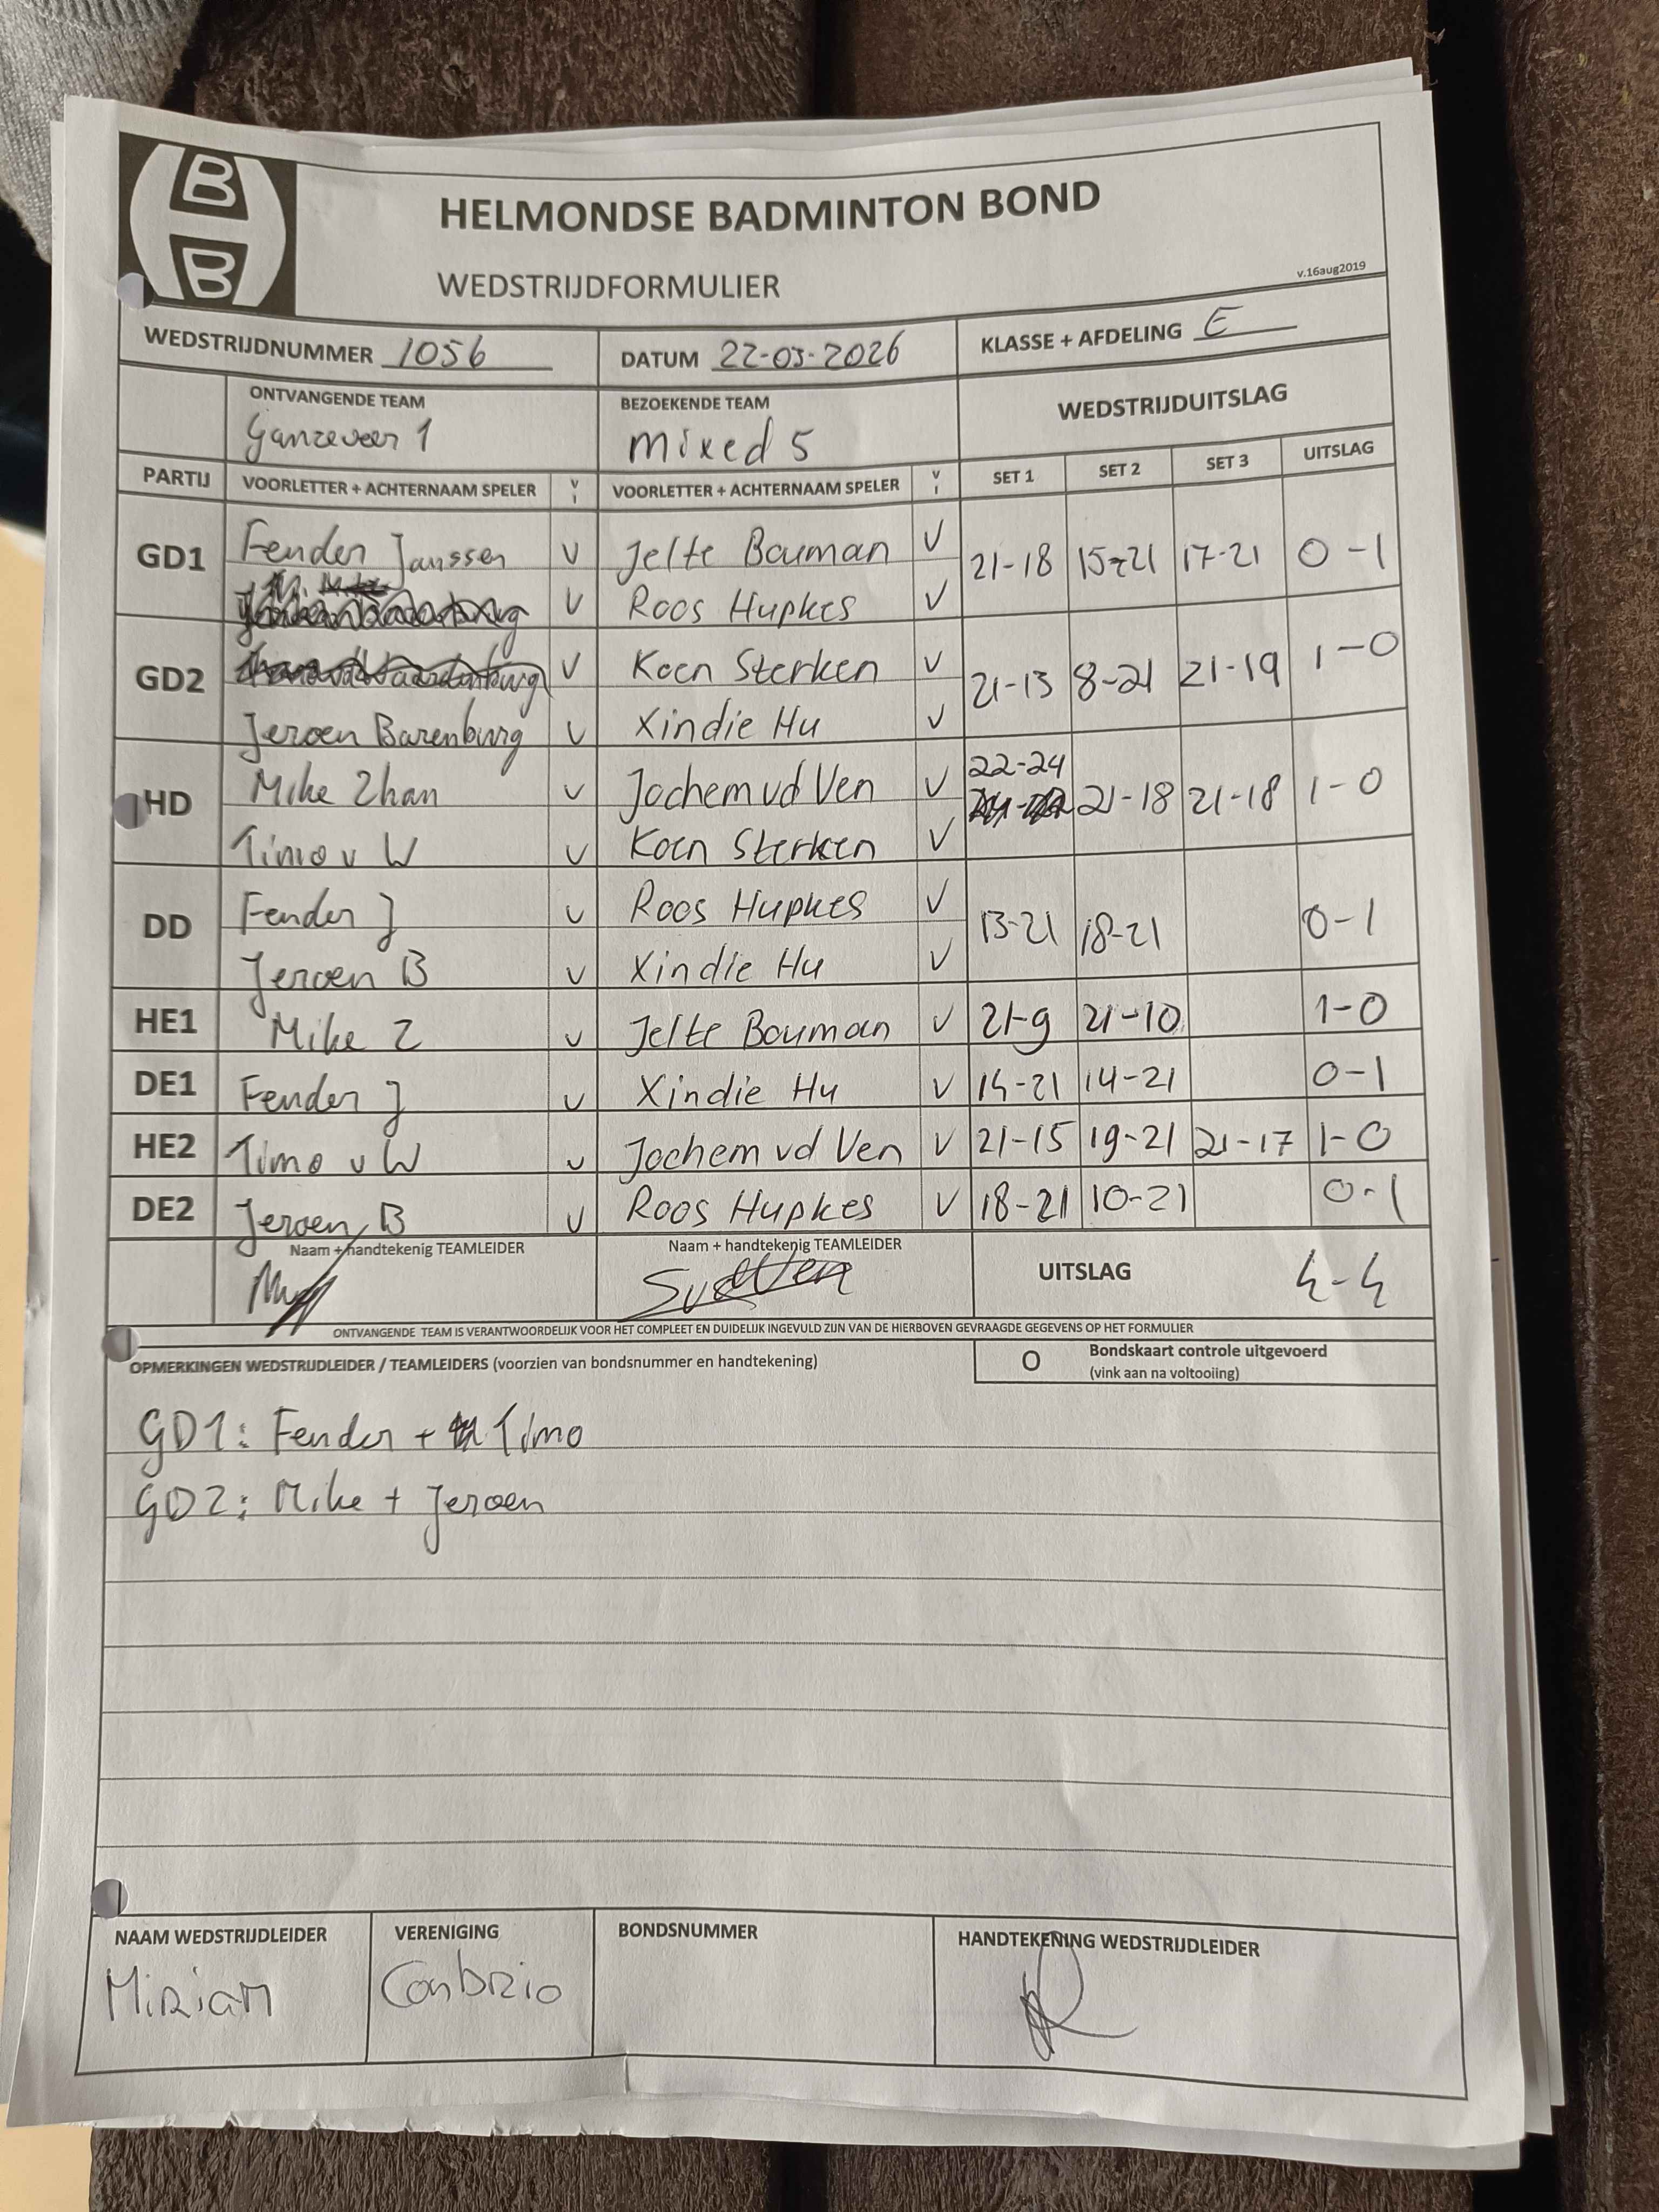 B
B
HELMONDSE BADMINTON BOND
WEDSTRIJDFORMULIER
v.16aug2019
WEDSTRIJDNUMMER 1056 DATUM 22-03-2026 KLASSE + AFDELING E
ONTVANGENDE TEAM BEZOEKENDE TEAM WEDSTRIJDUITSLAG
Ganzeveer 1 mixed 5
PARTIJ VOORLETTER + ACHTERNAAM SPELER V I VOORLETTER + ACHTERNAAM SPELER V I SET 1 SET 2 SET 3 UITSLAG
GD1 Fender Janssen V Jelte Bouman V 21-18 15-21 17-21 0-1
V Roos Hupkes V
GD2 V Koen Sterken V 21-13 8-21 21-19 1-0
Jeroen Barenburg V Xindie Hu V
HD Mike Zhan V Jochem vd Ven V 22-24 21-18 21-18 1-0
Timo v W V Koen Sterken V
DD Fender J V Roos Hupkes V 13-21 18-21 0-1
Jeroen B V Xindie Hu V
HE1 Mike Z V Jelte Bouman V 21-9 21-10 1-0
DE1 Fender J V Xindie Hu V 14-21 14-21 0-1
HE2 Timo v W V Jochem vd Ven V 21-15 19-21 21-17 1-0
DE2 Jeroen B V Roos Hupkes V 18-21 10-21 0-1
Naam + handtekenig TEAMLEIDER Naam + handtekenig TEAMLEIDER UITSLAG 4-4
SvdVen
ONTVANGENDE TEAM IS VERANTWOORDELIJK VOOR HET COMPLEET EN DUIDELIJK INGEVULD ZIJN VAN DE HIERBOVEN GEVRAAGDE GEGEVENS OP HET FORMULIER
OPMERKINGEN WEDSTRIJDLEIDER / TEAMLEIDERS (voorzien van bondsnummer en handtekening) O Bondskaart controle uitgevoerd
(vink aan na voltooiing)
GD1: Fender + Timo
GD2: Mike + Jeroen
NAAM WEDSTRIJDLEIDER VERENIGING BONDSNUMMER HANDTEKENING WEDSTRIJDLEIDER
Miriam Conbrio